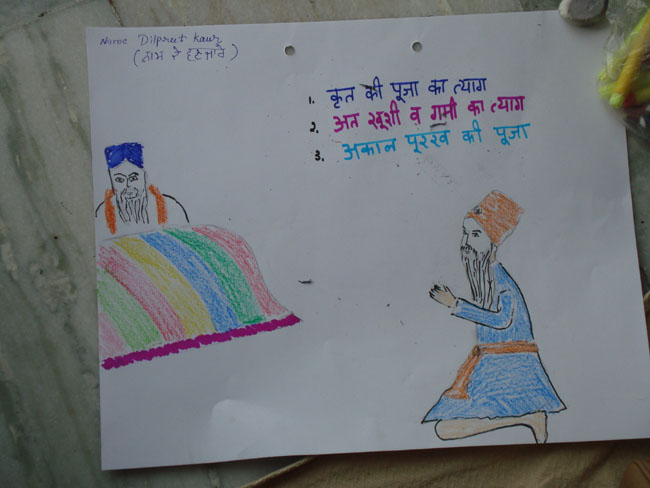 Name Dilpreet Kaur
(ਨਾਮ ਦੇ ਵਣਜਾਰੇ)
1. कृत की पूजा का त्याग
2. अत खूशी व गमी का त्याग
3. अकान पूरख की पूजा